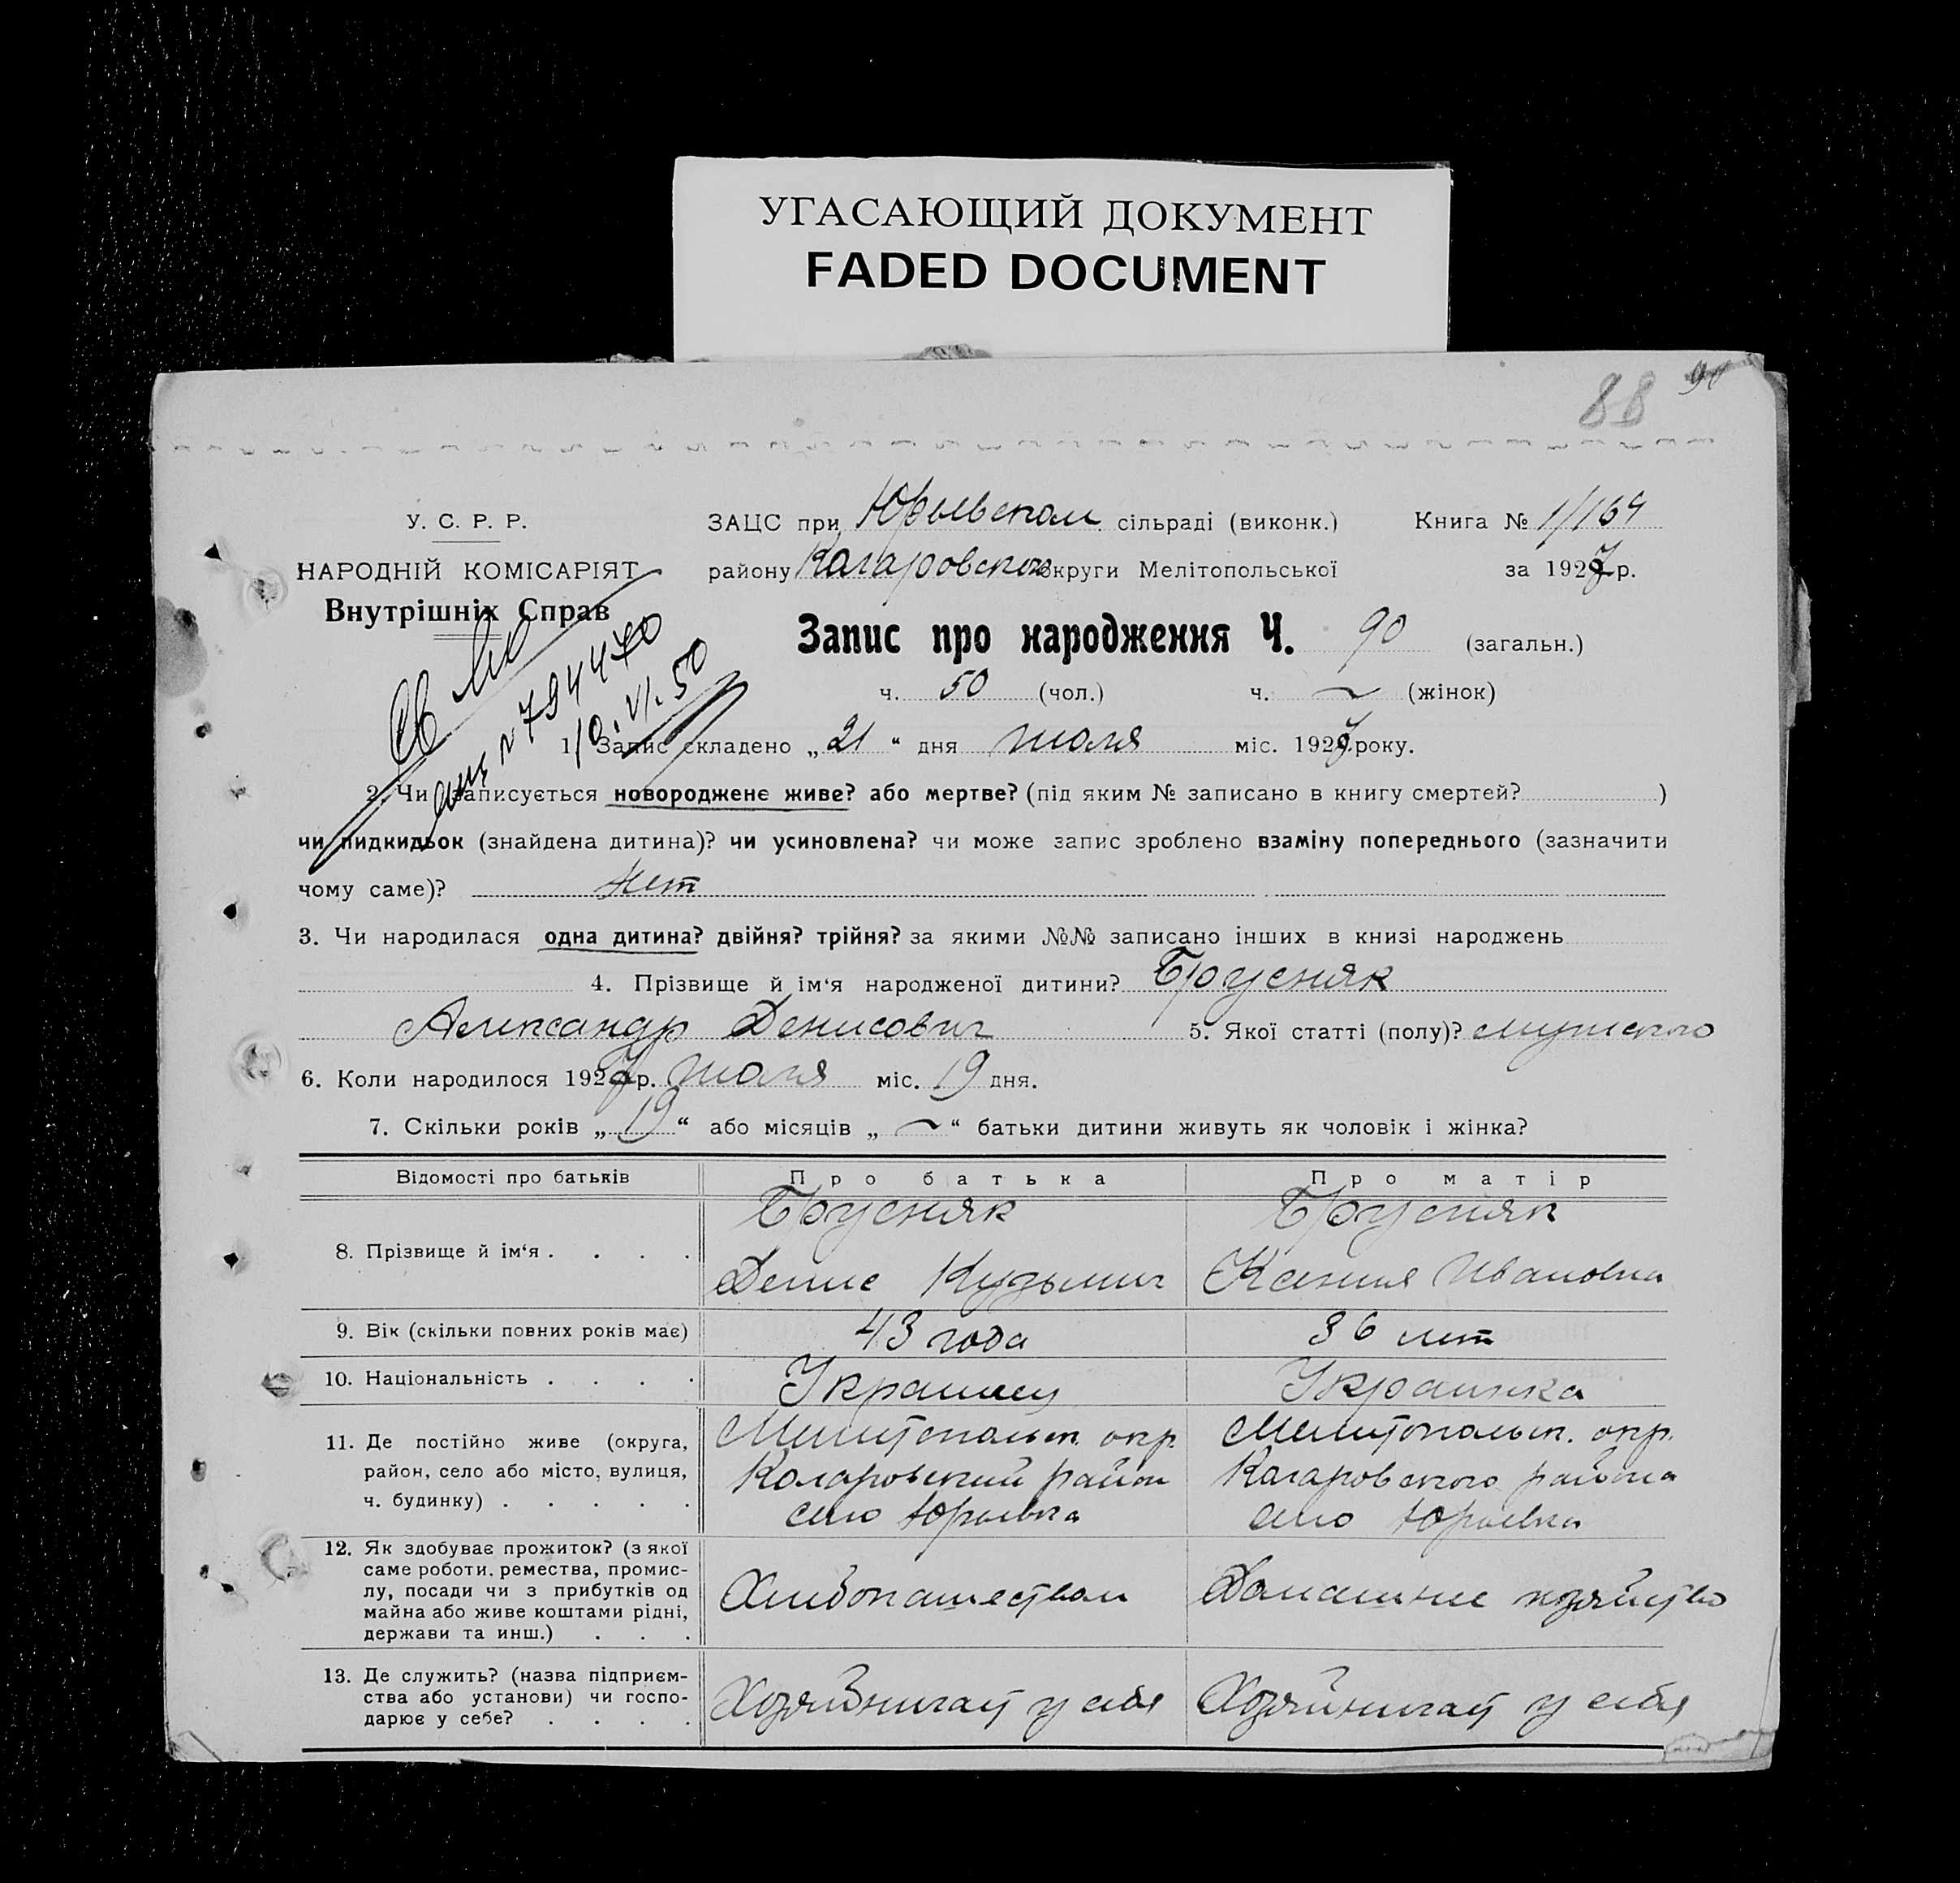 УГАСАЮЩИЙ ДОКУМЕНТ
FADED DOCUMENT
88 90
У. С. Р. Р.
НАРОДНІЙ КОМІСАРІЯТ
Внутрішніх Справ
ЗАЦС при Юрьевском сільраді (виконк.)
Книга № 1/169
району Коларовского округи Мелітопольської
за 1927 р.
Запис про народження Ч. 90 (загальн.)
ч. 50 (чол.) ч. ~ (жінок)
№ 794470
10.VI.50
1. Запис складено „ 21 “ дня июля міс. 1927 року.
2. Чи записується новороджене живе? або мертве? (під яким № записано в книгу смертей? )
чи пидкидьок (знайдена дитина)? чи усиновлена? чи може запис зроблено взаміну попереднього (зазначити
чому саме)? нет
3. Чи народилася одна дитина? двійня? трійня? за якими №№ записано інших в книзі народжень
4. Прізвище й ім‘я народженої дитини? Брусняк
Александр Денисович 5. Якої статті (полу)? мужского
6. Коли народилося 1927 р. июля міс. 19 дня.
7. Скільки років „ 19 “ або місяців „ ~ “ батьки дитини живуть як чоловік і жінка?
Відомості про батьків Про батька Про матір
8. Прізвище й ім‘я . . . .
Брусняк Брусняк
Денис Кузьмич Ксения Ивановна
9. Вік (скільки повних років має) 43 года 36 лет
10. Національність . . . . Украинец Украинка
11. Де постійно живе (округа,
район, село або місто, вулиця,
ч. будинку) . . . . .
Мелитопольск. окр.
Коларовский район
село Юрьевка
Мелитопольск. окр.
Коларовского района
село Юрьевка
12. Як здобуває прожиток? (з якої
саме роботи, ремества, промис-
лу, посади чи з прибутків од
майна або живе коштами рідні,
держави та инш.) . . .
Хлебопашеством Домашнее хозяйство
13. Де служить? (назва підприєм-
ства або установи) чи госпо-
дарює у себе? . . . .
Хозяйничает у себя Хозяйничает у себя